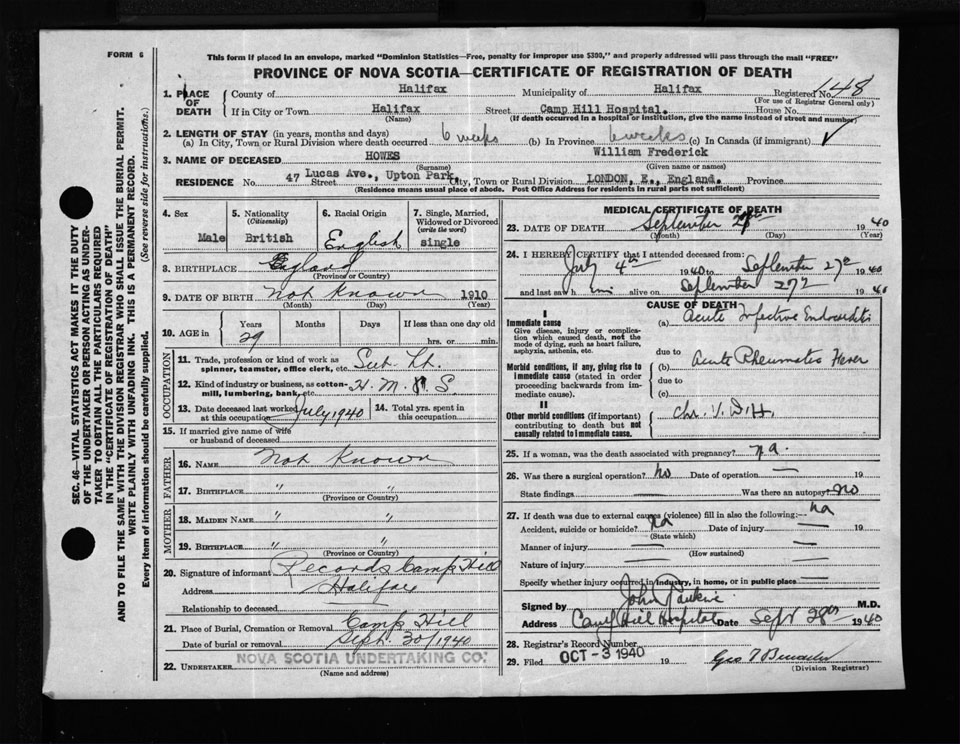 FORM 6
This form if placed in an envelope, marked "Dominion Statistics—Free, penalty for improper use $300," and properly addressed will pass through the mail "FREE"
PROVINCE OF NOVA SCOTIA—CERTIFICATE OF REGISTRATION OF DEATH
1. PLACE OF DEATH County of Halifax Municipality of Halifax Registered No. 48
(For use of Registrar General only)
If in City or Town Halifax Street Camp Hill Hospital. House No.
(Name) (If death occurred in a hospital or institution, give the name instead of street and number)
2. LENGTH OF STAY (in years, months and days)
(a) In City, Town or Rural Division where death occurred 6 weeks (b) In Province 6 weeks (c) In Canada (if immigrant) ✓
3. NAME OF DECEASED HOWES William Frederick
(Surname) (Given name or names)
RESIDENCE No. 47 Street Lucas Ave., Upton Park, City, Town or Rural Division LONDON, E., England. Province
(Residence means usual place of abode. Post Office Address for residents in rural parts not sufficient)
SEC. 46—VITAL STATISTICS ACT MAKES IT THE DUTY
OF THE UNDERTAKER OR PERSON ACTING AS UNDER-
TAKER TO OBTAIN ALL THE PARTICULARS REQUIRED
IN THE "CERTIFICATE OF REGISTRATION OF DEATH"
AND TO FILE THE SAME WITH THE DIVISION REGISTRAR WHO SHALL ISSUE THE BURIAL PERMIT.
WRITE PLAINLY WITH UNFADING INK. THIS IS A PERMANENT RECORD.
Every item of information should be carefully supplied. (See reverse side for instructions.)
4. Sex Male
5. Nationality (Citizenship) British
6. Racial Origin English
7. Single, Married, Widowed or Divorced (write the word) single
8. BIRTHPLACE England
(Province or Country)
9. DATE OF BIRTH Not Known 1910
(Month) (Day) (Year)
10. AGE in Years Months Days If less than one day
29 hrs. or min.
OCCUPATION
11. Trade, profession or kind of work as spinner, teamster, office clerk, etc. Sub-Lt.
12. Kind of industry or business, as cotton-mill, lumbering, bank, etc. H. M. S.
13. Date deceased last worked at this occupation July 1940 14. Total yrs. spent in this occupation
15. If married give name of wife or husband of deceased
FATHER
16. NAME Not Known
17. BIRTHPLACE " "
(Province or Country)
MOTHER
18. MAIDEN NAME " "
19. BIRTHPLACE " "
(Province or Country)
20. Signature of informant Records Camp Hill
Address Halifax
Relationship to deceased
21. Place of Burial, Cremation or Removal Camp Hill
Date of burial or removal Sept. 30/1940
22. UNDERTAKER NOVA SCOTIA UNDERTAKING CO.
(Name and address)
MEDICAL CERTIFICATE OF DEATH
23. DATE OF DEATH September 1940
(Month) (Day) (Year)
24. I HEREBY CERTIFY that I attended deceased from:
July 4th 1940 to September 27th 1940
and last saw him alive on September 27th 1940
CAUSE OF DEATH
I
Immediate cause
Give disease, injury or complication which caused death, not the mode of dying, such as heart failure, asphyxia, asthenia, etc.
(a) Acute Infective Endocarditis
due to
Morbid conditions, if any, giving rise to immediate cause (stated in order proceeding backwards from immediate cause).
(b) Acute Rheumatic Fever
due to
(c)
II
Other morbid conditions (if important) contributing to death but not causally related to immediate cause.
Chr. V. D. H.
25. If a woman, was the death associated with pregnancy? n.a.
26. Was there a surgical operation? No Date of operation — 19
State findings — Was there an autopsy? No
27. If death was due to external causes (violence) fill in also the following:— na
Accident, suicide or homicide? na Date of injury — 19
(State which)
Manner of injury — —
(How sustained)
Nature of injury — —
Specify whether injury occurred in industry, in home, or in public place —
Signed by John Rankine M.D.
Address Camp Hill Hospital Date Sept 28th 1940
28. Registrar's Record Number
29. Filed OCT -3 1940 19
(Division Registrar)